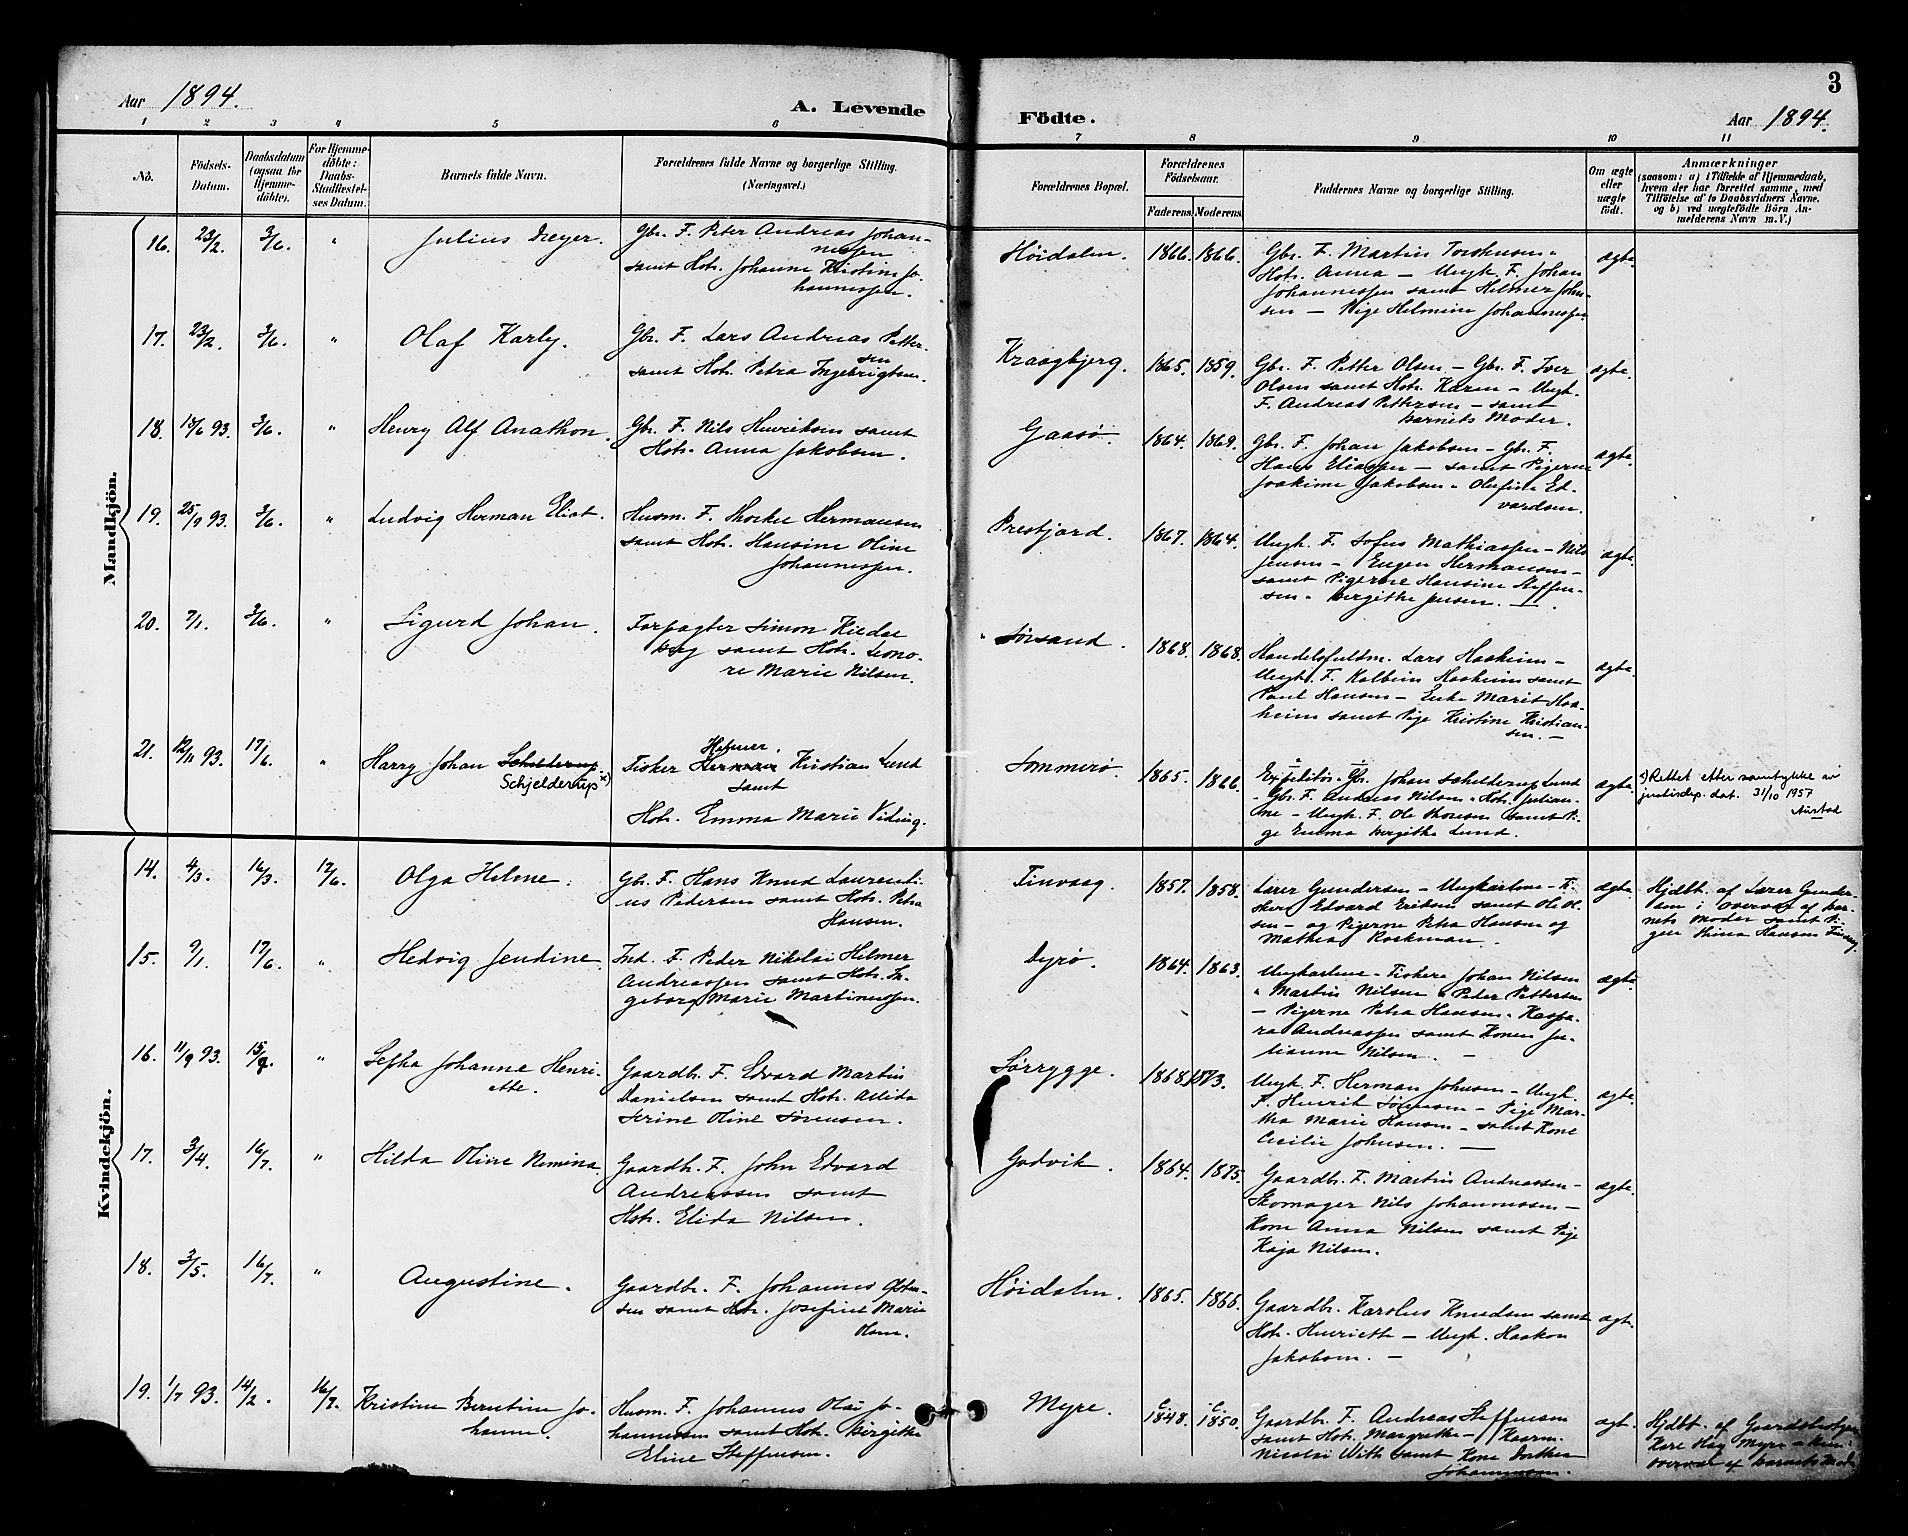 3
Aar 1894.
A. Levende Födte.
Aar 1894.
1 2 3 4 5 6 7 8 9 10 11
No.
Födsels-
Datum.
Daabsdatum
(ogsaa for
Hjemme-
döbte).
For Hjemme-
döbte:
Daabs-
Stadfæstel-
ses Datum.
Barnets fulde Navn.
Forældrenes fulde Navne og borgerlige Stilling.
(Næringsvei.)
Forældrenes Bopæl.
Forældrenes
Födselsaar.
Faderens. Moderens.
Faddernes Navne og borgerlige Stilling.
Om ægte
eller
uægte
födt.
Anmærkninger
(saasom: a) i Tilfælde af Hjemmedaab,
hvem der har forrettet samme, med
Tilföielse af to Daabsvidners Navne.
og b) ved uægtefödte Börn An-
melderens Navn m.V.)
Mandkjön.
16. 23/2. 3/6. " Julius Dreyer.
Gbr. F. Peter Andreas Johan-
nessen
samt Hstr. Johanne Kristine Jo-
hannessen.
Høidalen. 1866. 1866.
Gbr. F. Martin Torstensen "
Hstr. Anna — Ungk. F. Johan
Johannessen samt Helmer John-
sen — Pige Helmine Johannessen
ægte.
17. 23/2. 3/6. " Olaf Karly.
Gbr. F. Lars Andreas Petter-
sen
samt Hstr. Petra Ingebrigtsen.
Kraagbjerg. 1865. 1859.
Gbr. F. Petter Olsen — Gbr. F. Iver
Olsen samt Hstr. Karen — Ungk.
F. Andreas Pettersen — samt
barnets Moder.
ægte.
18. 18/6 93. 3/6. " Henry Alf Anathon.
Gbr. F. Nils Henriksen samt
Hstr. Anna Jakobsen.
Gaasø. 1864. 1869.
Gbr. F. Johan Jakobsen — Gbr. F.
Hans Eliassen — samt Pigerne
Joakime Jakobsen " Olufine Ed-
vardsen.
ægte.
19. 25/9 93. 3/6. " Ludvig Herman Eliot.
Husm. F. Hermansen
samt Hstr. Hansine Oline
Johannessen.
Presfjord. 1867. 1864.
Ungk. F. Sofus Mathiassen — Nils
Jensen — Eugen Hermansen —
samt Pigerne Hansine Steffen-
sen " Bergithe Jensen.
ægte.
20. 7/1. 3/6. " Sigurd Johan.
Forpagter Simon Kildal
samt Hstr. Leono-
re Marie Nilsen.
Sørsand. 1868. 1868.
Handelsfuldm. Lars Haaheim —
Ungk. F. Kolbein Haaheim samt
Paul Hansen — Enke Marit Haa-
heim samt Pige Kristine Kristian-
sen. —
ægte.
21. 12/11 93. 17/6. " Harry Johan Schilderup
Schjelderup x)
Fisker Helmer Kristian Lund
samt
Hstr. Emma Marie Viding.
Sommerø. 1865. 1866.
Expeditør Gbr. Johan Schilderup Lund
— Gbr. F. Andreas Nilsen " Hstr. Julian-
ne — Ungk. F. Ole samt Pi-
ge Emma Bergithe Lund.
ægte.
x) Rettet etter samtykke av
justisdep. dat. 31/10 1957
Aurstad
Kvindekjön.
14. 4/3. 16/3. 17/6. Olga Helme.
Gbr. F. Hans Knud Laurenti-
us Pedersen samt Hstr. Petra
Hansen.
Finvaag. 1857. 1858.
Lærer Gundersen — Ungkarlene — Fi-
skere Edvard Eriksen samt Ole Ol-
sen — og Pigerne Petra Hansen og
Mathea Rockman.
ægte.
Hjdbt. af Lærer Gunder-
sen i Overvær af bar-
nets Moder samt Pi-
gen Hansen
15. 9/1. 17/6. " Hedvig Jendine.
Ind. F. Peder Nikolai Helmer
Andreassen samt Hstr. In-
geborg Marie Martinussen.
Dyrø. 1864. 1863.
Ungkarlene — Fiskere Johan Nilsen
" Martin Nilsen " Peder Pettersen
— Pigerne Petra Hansen " Kaspa-
ra Andreassen samt Konen Ju-
lianne Nilsen. —
ægte
16. 11/9 93. 15/7. " Sefka Johanne Henri-
ette.
Gaardbr. F. Edvard Martin
Danielsen samt Hstr. Alida
Serine Oline Sørensen.
Sørrygge. 1868. 1873.
Ungk. F. Herman Johnsen — Ungk.
F. Henrik Sørensen — Pige Mar-
tha Marie Hansen — samt Kone
Cecilie Johnsen. —
ægte.
17. 3/4. 16/7. " Hilda Oline Nimina.
Gaardb. F. John Edvard
Andreassen samt
Hstr. Elida Nilsen.
Godvik. 1864. 1875.
Gaardb. F. Martin Andreassen —
Skomager Nils Johannessen —
Kone Anna Nilsen samt Pige
Kaja Nilsen.
ægte.
18. 3/5. 16/7. " Augustine.
Gaardbr. F. Johannes Osten-
sen samt Hstr. Josefine Marie
Olsen.
Høidalen. 1865. 1866.
Gaardb. Karolus Knudsen samt
Hstr. Henriette — Ungk. Haakon
Jakobsen. —
ægt.
19. 1/7 93. 14/2. 16/7. Kristine Berntine Jo-
hanne.
Husm. F. Johannes Olai Jo-
hannessen samt Hstr. Birgithe
Eline Steffensen.
Myre. C. 1848. C. 1850.
Gaardbr. F. Andreas Steffensen
samt Hstr. Margrethe — Kaarm.
Nicolai With samt Kone Dorthea
Johannessen.
ægt.
Hjdbt. af Gaardsbestyrer
Kare Hag Myre —
overvær af barnets Mode